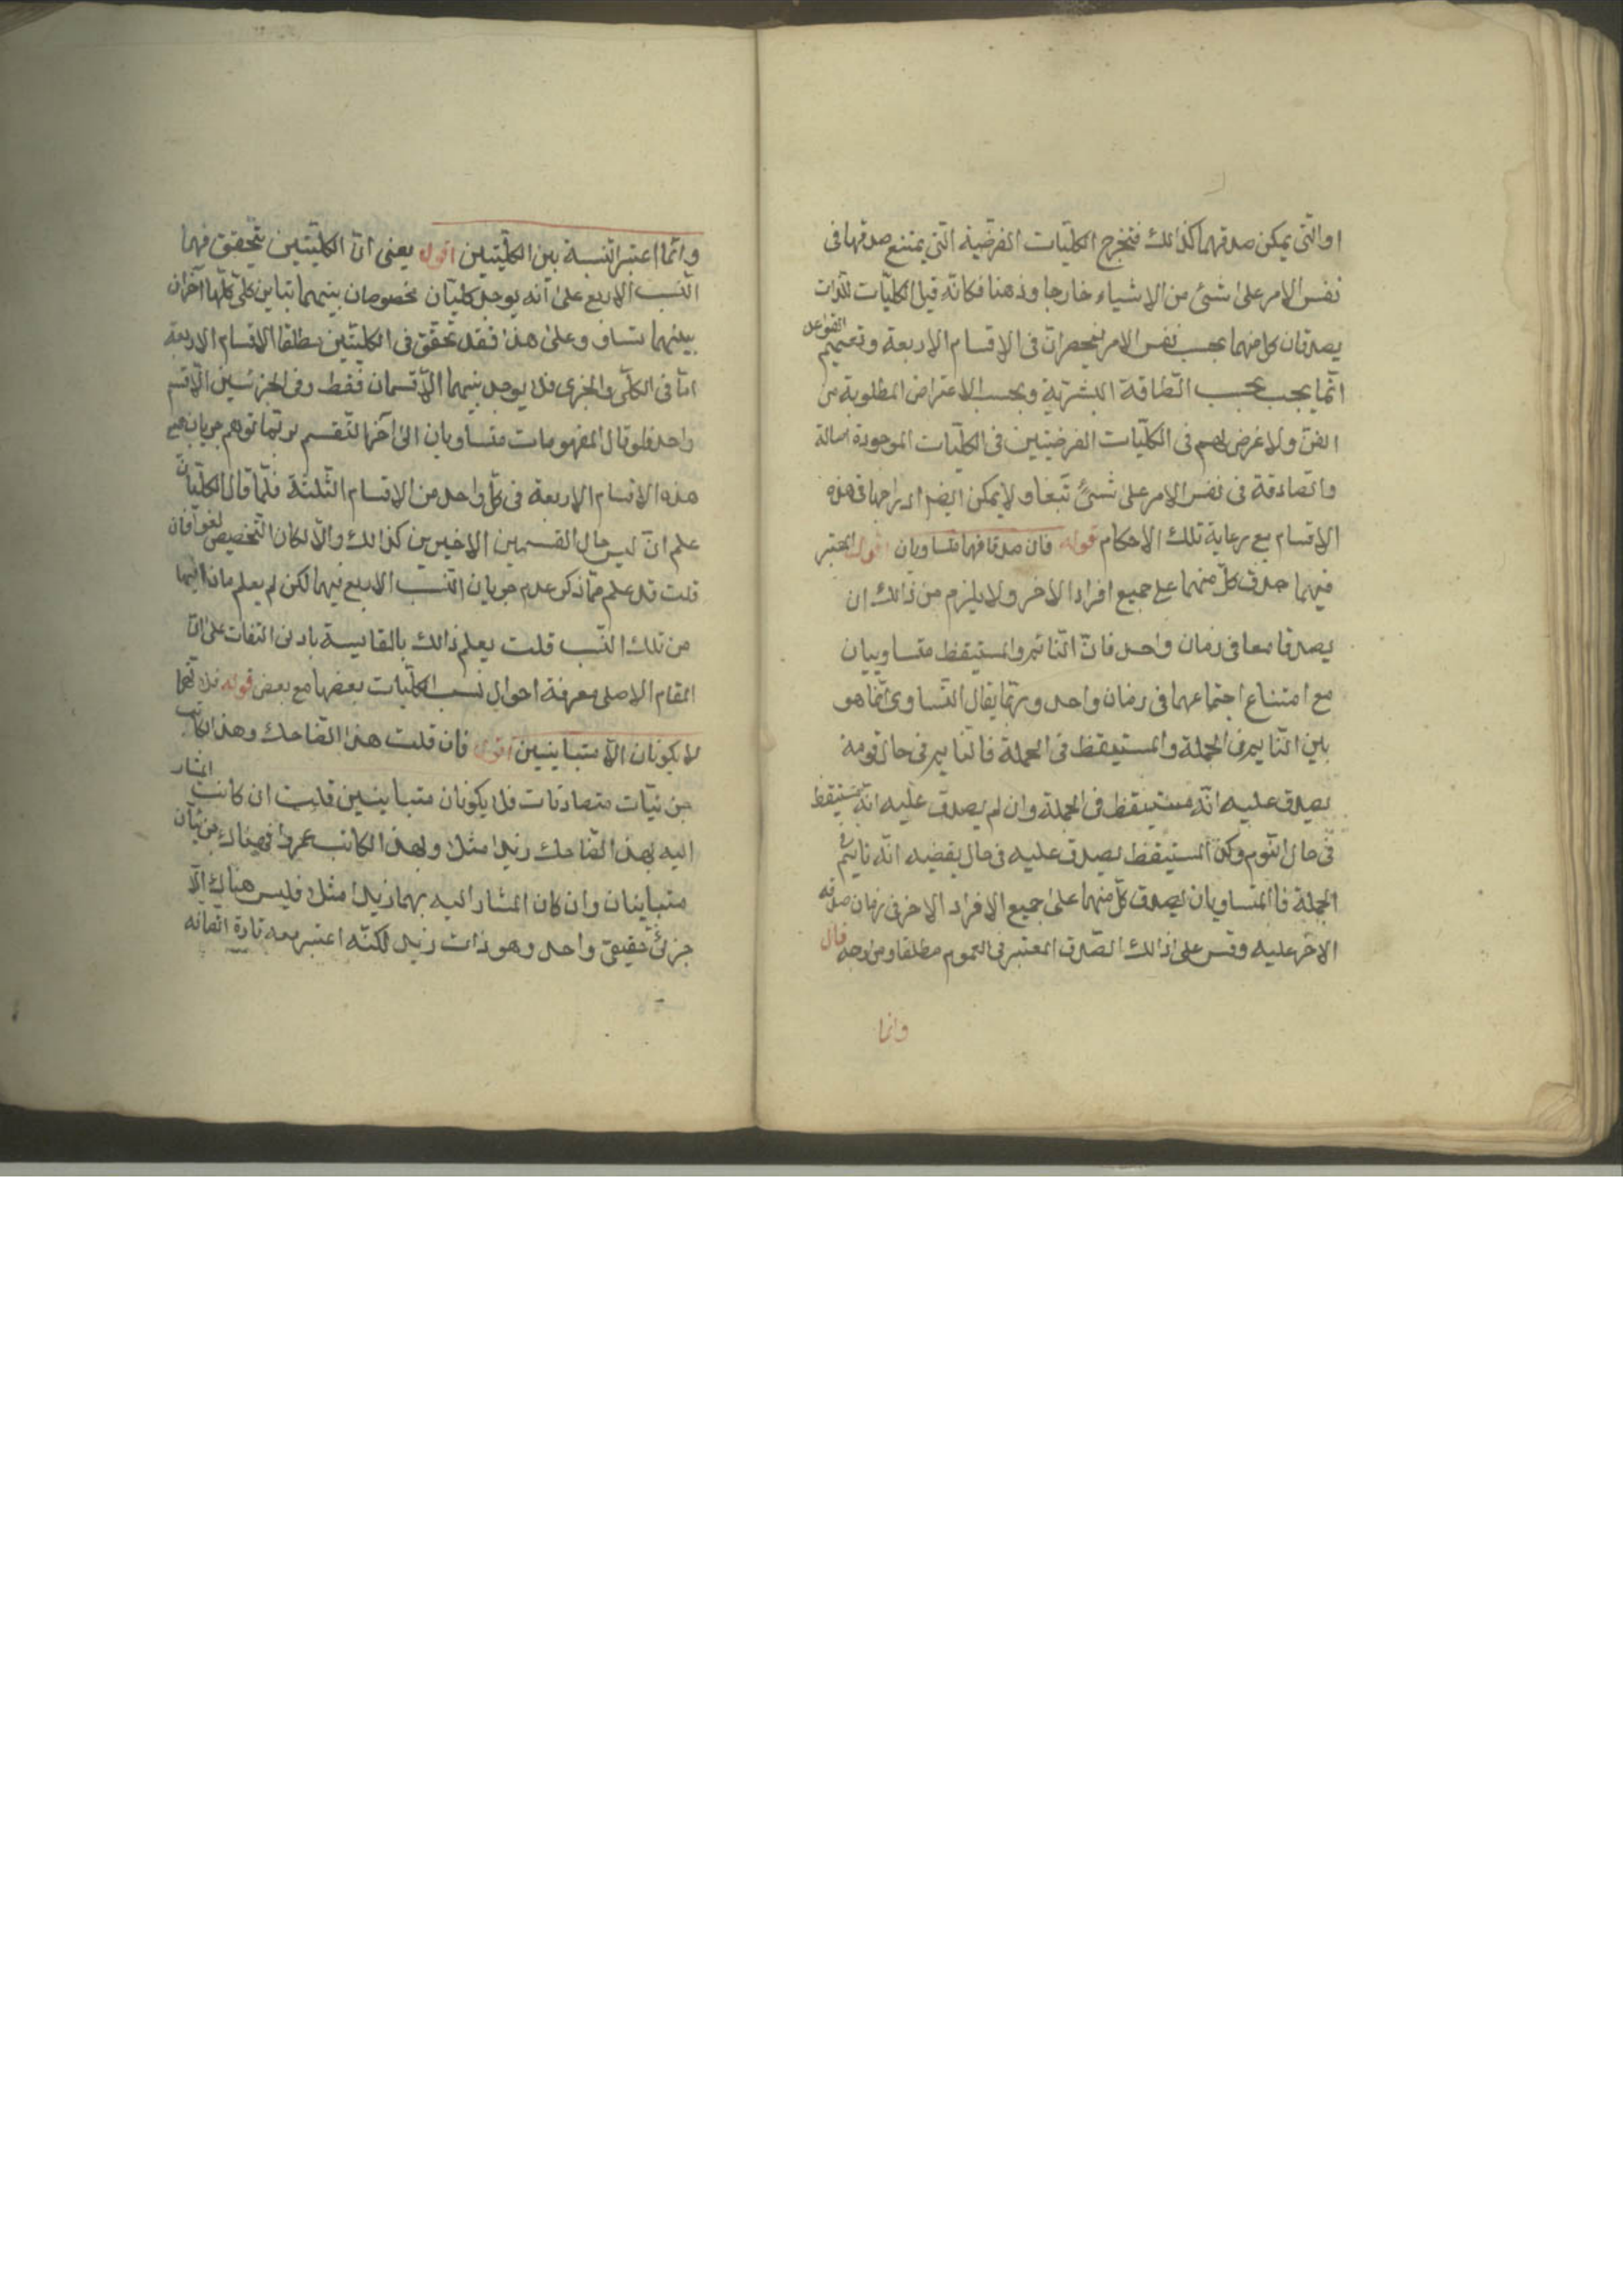 او التى يمكن صدقهما كذالك فتخرج الكليّات الفرضية التى يمتنع صدقها فى
نفس الامر على شئ من الاشياء خارجا وذهنا فكانّه قيل الكليّات اللذان
يصدقان كل منهما بحسب نفس الامر منحصران فى الاقسام الاربعة وتعميم القواعل
انّما يجب بحسب الطّاقة البشريّة وبحسب الاعتراض المطلوبة من
الفنّ ولا غرض لهم فى الكلّيات الفرضيّتين فى الكلّيات الموجودة اصالة
والصّادقة فى نفس الامر على شئ تبعا ولا يمكن ايضا ادراجها فى هذه
الاقسام مع رعاية تلك الاحكام قوله فان صدقا فهما متساويان اقول المعتبر
فيهما صدق كلّ منهما على جميع افراد الاخر ولا يلزم من ذالك ان
يصدقا معا فى زمان واحد فانّ النّائم والمستيقظ متساوييان
مع امتناع اجتماعهما فى زمان واحد وربّما يقال التّساوى انّما هو
بين النّايم فى الجملة والمستيقظ فى الجملة فالنّايم فى حال نومه
يصدق عليه انّه مستيقظ فى الجملة وان لم يصدق عليه انّه مستيقظ
فى حال النّوم وكذ المستيقظ يصدق عليه فى حال يقضيه انّه نايم فى
الجملة فاالمتساويان يصدق كلّ منهما على جميع الافراد الاخر فى زمان صدقه
الاخر عليه وقس على ذالك الصّدق المعتبر فى العموم مطلقا ومن وجه قال
وانّما
وانّما اعتبر النّسبة بين الكلّيّتين اقول يعنى انّ الكليّتين يتحقق فيهما
النّسب الاربع على انّه يوجد كليّان مخصوصان بينهما تباين كلّى كليّها آخران
بينهما تساو وعلى هذا فقد تحقّق فى الكليّتين مطلقا الاقسام الاربعة
امّا فى الكلّى والجزى فلا يوجد بينهما الّا قسمان فقط وفى الجزئيين الّا قسم
واحد فلو قال المفهومات متساويان الى آخر التّقسيم لربّما توهم جريان جميع
هذه الاقسام الاربعة فى كلّ واحد من الاقسام الثّلثة فلمّا قال الكليّان
علم انّ ليس حال القسمين الاخيرين كذالك والّا لكان التّخصيص لغوا فان
قلت قد علم ممّا ذكر عدم جريان النّسب الاربع فيهما لكن لم يعلم ماذا فيهما
من تلك النّسب قلت يعلم ذالك بالمقايسة بادنى التفات على انّ
المقام الاصلى معرفة احوال نسب الكلّيات بعضها مع بعض قوله فلانّهما
لا يكونان الّا متباينين اقول فان قلت هذا الضّاحك وهذا الكاتب
جزئيّات متصادقات فلا يكونان متباينين قلت ان كانت المشار
اليه بهذا الضّاحك زيدا مثلا وبهذا الكاتب عمروا فهناك جزئيّان
متباينان وان كان المشار اليه بهما زيدا مثلا فليس هناك الّا
جزئى حقيقى واحد وهو ذات زيد لكنّه اعتبر معه تارة اتّصافه